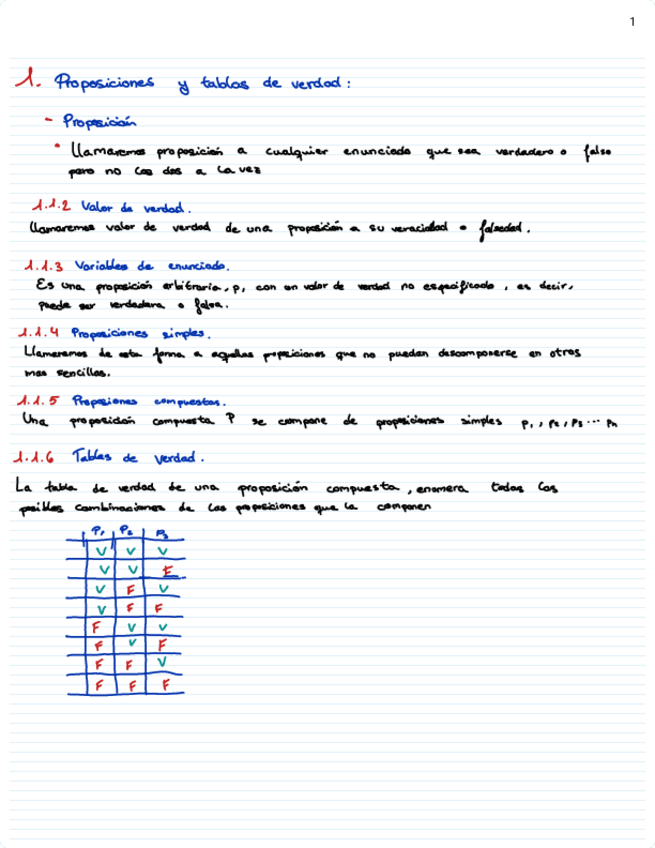 1
1. Proposiciones y tablas de verdad:
- Proposición
• Llamaremos proposición a cualquier enunciado que sea verdadero o falso
pero no las dos a la vez
1.1.2 Valor de verdad.
Llamaremos valor de verdad de una proposición a su veracidad o falsedad.
1.1.3 Variables de enunciado.
Es una proposición arbitraria, p, con un valor de verdad no especificado, es decir,
puede ser verdadera o falsa.
1.1.4 Proposiciones simples.
Llamaremos de esta forma a aquellas proposiciones que no puedan descomponerse en otras
mas sencillas.
1.1.5 Proposiones compuestas.
Una proposición compuesta P se compone de proposiciones simples p1, p2, p3 ... pn
1.1.6 Tablas de verdad.
La tabla de verdad de una proposición compuesta, enumera todas las
posibles combinaciones de las proposiciones que la componen
P1 P2 P3
V V V
V V F
V F V
V F F
F V V
F V F
F F V
F F F